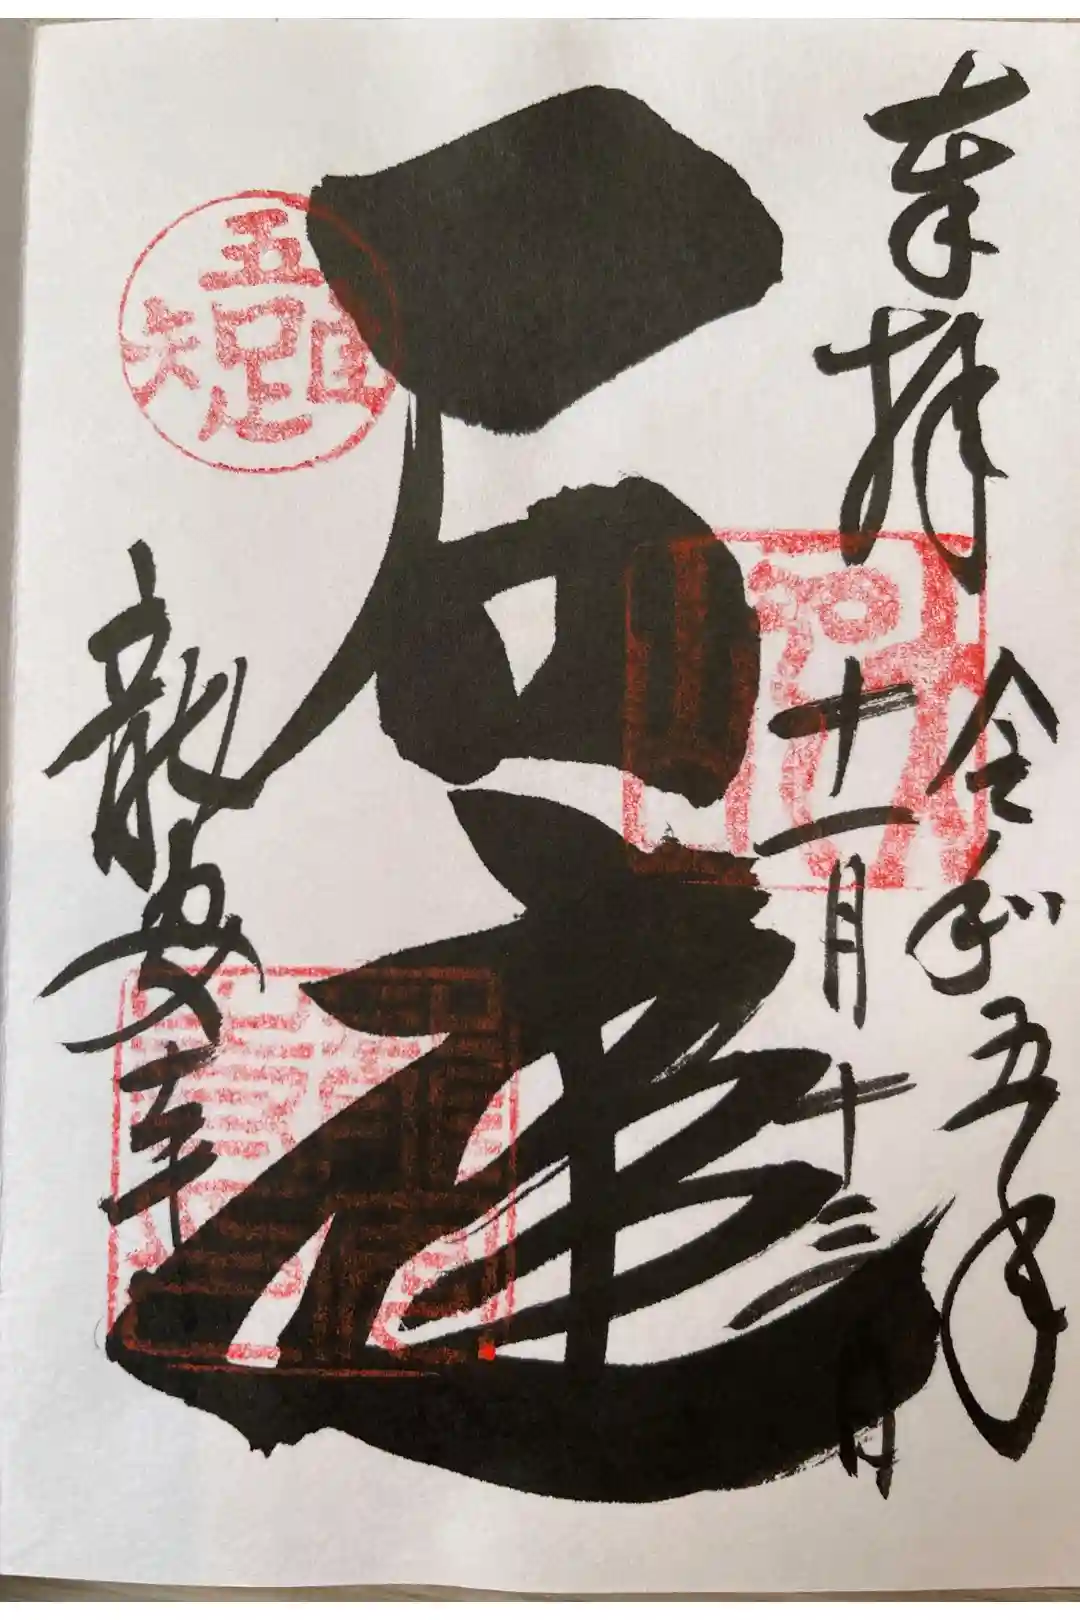 奉拝
令和五年
十一月十三日
石庭
龍安寺
吾唯足知